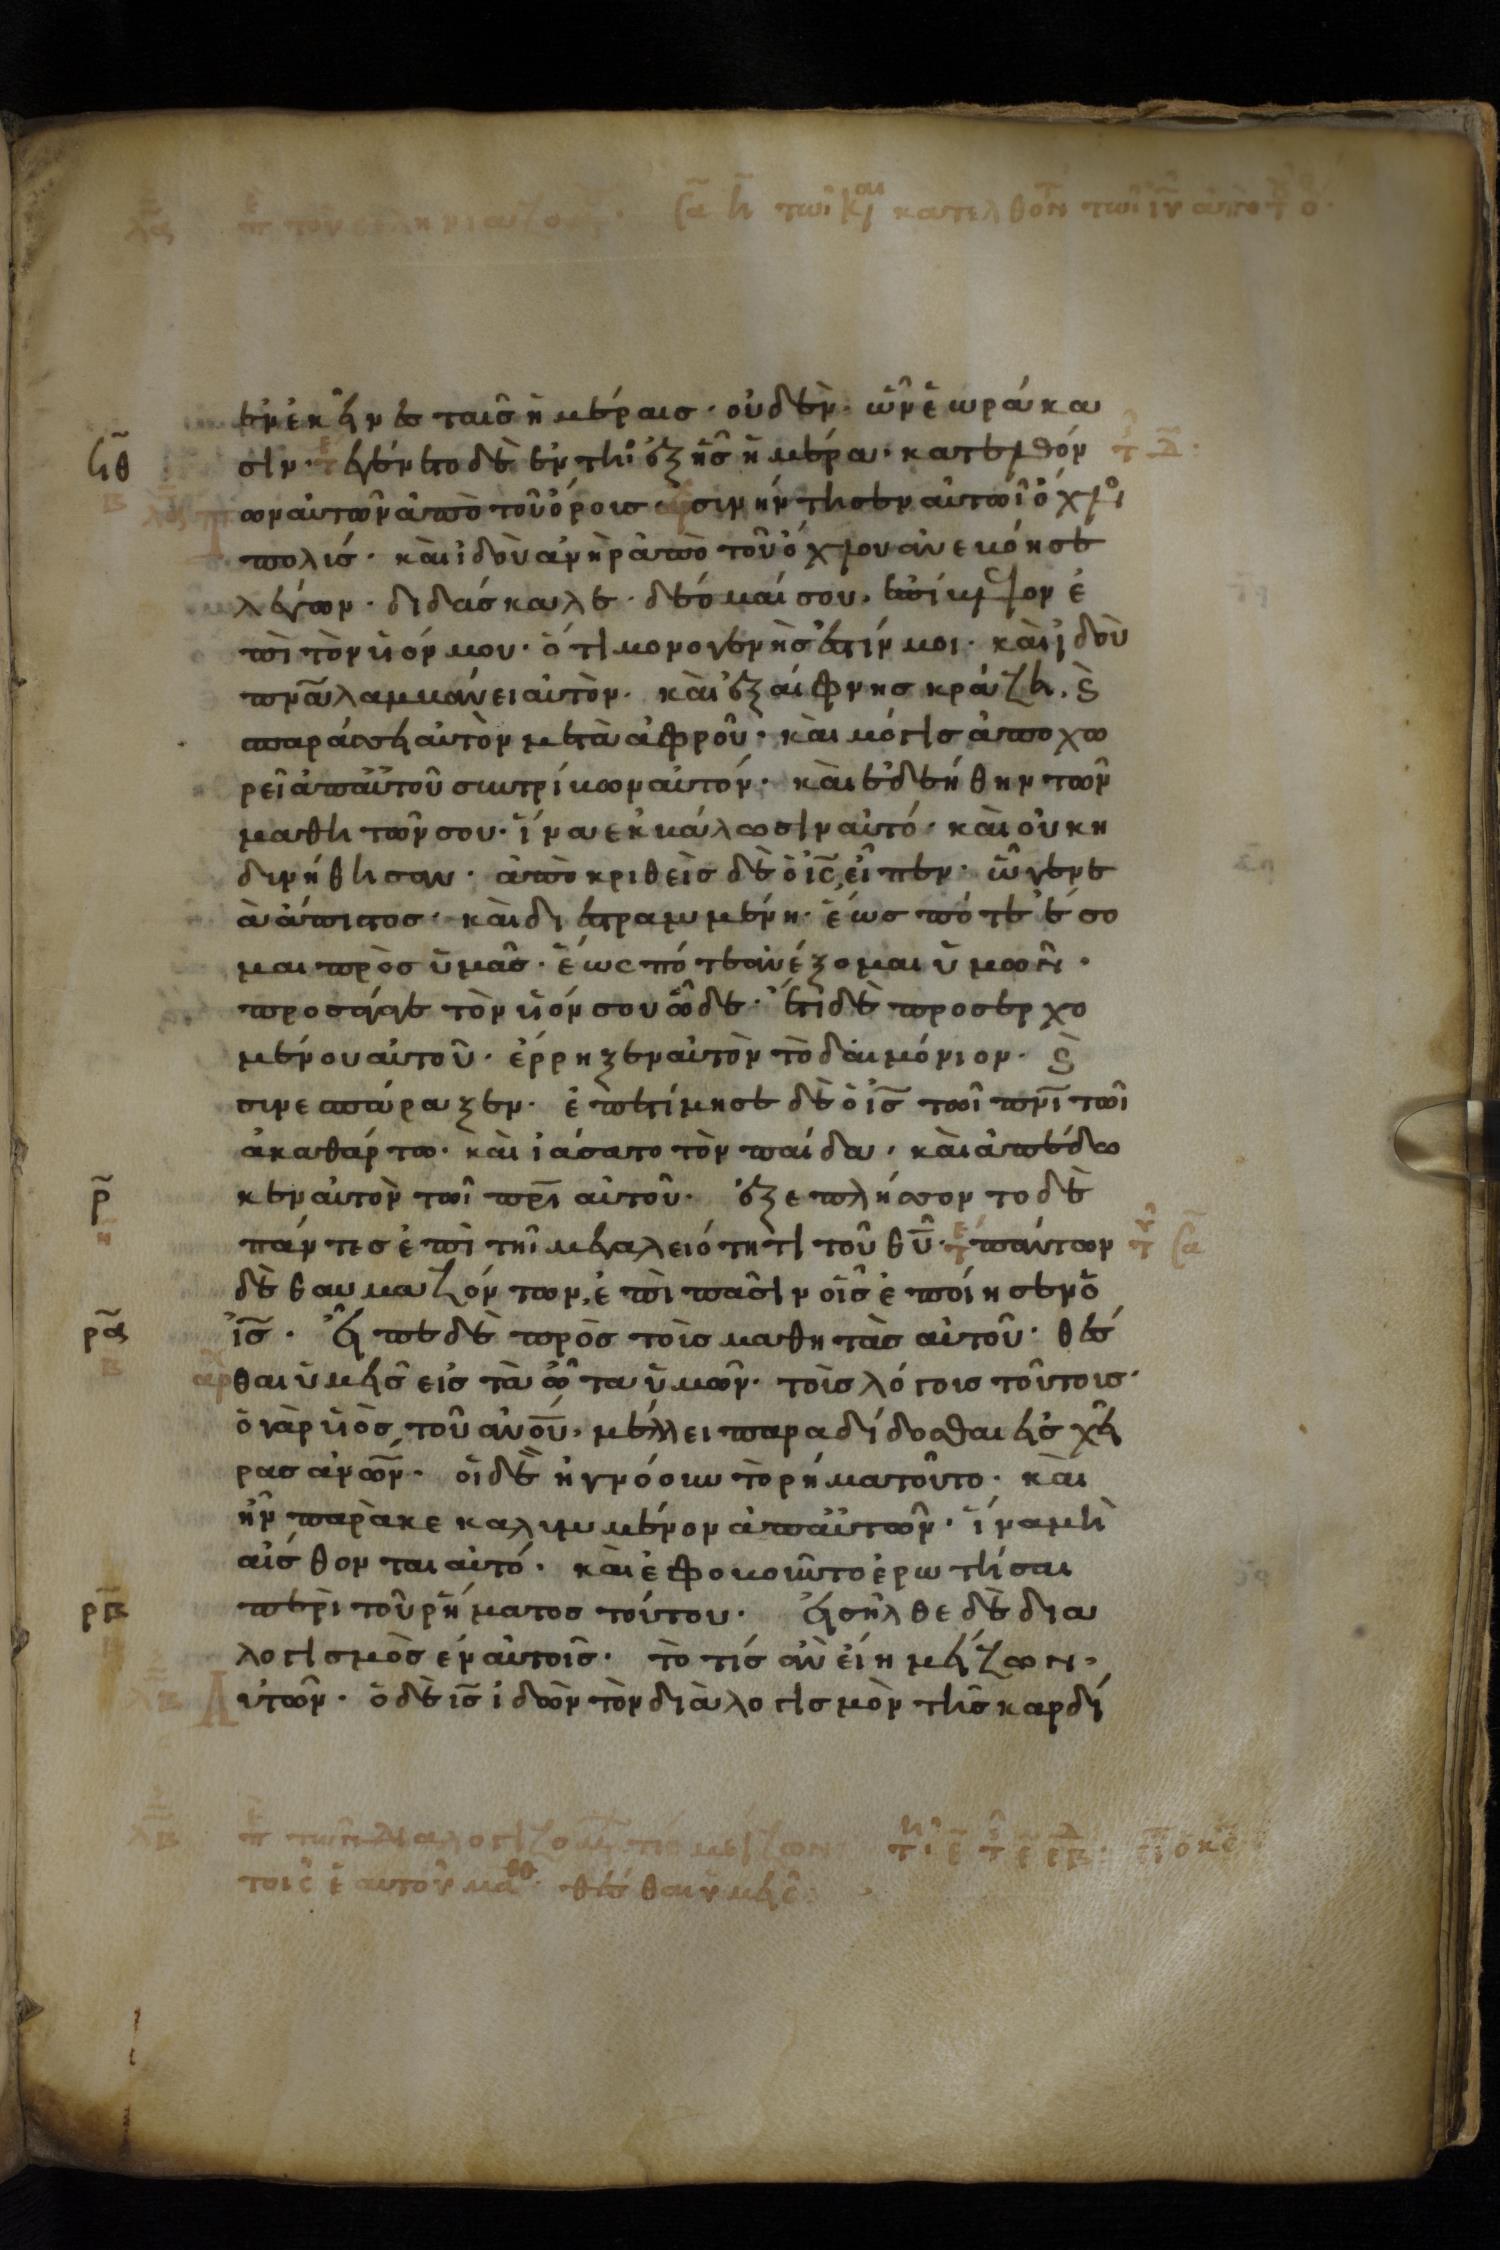 ἐν ἐκείναις ταῖς ἡμέραις · οὐδὲν · ὧν ἑωράκα
ϟθ σιν · ἐγένετο δὲ ἐν τῆ ἑξῆς ἡμέρα · κατελθόν
των αὐτῶν ἀπὸ τοῦ ὄρους συνήντησεν αὐτῶι ὄχλος
πολύς · καὶ ἰδοὺ ἀνὴρ ἀπὸ τοῦ ὄχλου ἀνεβόησε
λέγων · διδάσκαλε · δέομαί σου · ἐπίβλεψον ἐ
πὶ τὸν υἱόν μου · ὅτι μονογενής ἐστίν μοι · καὶ ἰδοὺ
πνα λαμβάνει αὐτὸν · καὶ ἐξαίφνης κράζει · ϗ
σπαράσσει αὐτὸν μετὰ ἀφροῦ · καὶ μόγις ἀποχω
ρεῖ ἀπ' αὐτοῦ συντρίβων αὐτόν · καὶ ἐδεήθην τῶν
μαθητῶν σου · ἵνα ἐκβάλωσιν αὐτό · καὶ οὐκ η
δυνήθησαν · ἀποκριθεὶς δὲ ὁ ις εἶπεν · ὦ γενε
ὰ ἄπιστος · καὶ διεστραμμένη · ἕως πότε ἔσο
μαι πρὸς ὑμᾶς · ἕως πότε ἀνέξομαι ὑμῶν ·
προσάγαγε τὸν υἱόν σου ὧδε · ἔτι δὲ προσερχο
μένου αὐτοῦ · ἔρρηξεν αὐτὸν τὸ δαιμόνιον · ϗ
συνεσπάραξεν · ἐπετίμησε δὲ ὁ ις τῶι πνι τῶι
ἀκαθάρτω · καὶ ἰάσατο τὸν παίδα · καὶ ἀπέδω
ρ κεν αὐτὸν τῶι πρι αὐτοῦ · ἐξεπλήσσοντο δὲ
πάντες ἐπὶ τῆι μεγαλειότητι τοῦ θυ · πάντων
δὲ θαυμαζόντων, ἐπὶ πᾶσιν οἷς ἐποίησεν ὁ
ρα ις · εἶπε δὲ πρὸς τοὺς μαθητὰς αὐτοῦ · θέσ
θαι ὑμεῖς εἰς τὰ ὦτα ὑμῶν · τοὺς λόγους τούτους ·
ὁ γὰρ υἱὸς τοῦ ανου, μέλλει παραδίδοσθαι εἰς χεῖ
ρας ανων · οἱ δὲ ἠγνόουν τὸ ρήμα τοῦτο · καὶ
ἦν παρακεκαλυμμένον ἀπ' αὐτῶν · ἵνα μὴ
αἴσθονται αὐτό · καὶ ἐφοβοῦντο ἐρωτῆσαι
ρβ περὶ τοῦ ρήματος τούτου · εἰσῆλθε δὲ δια
λογισμὸς ἐν αὐτοῖς · τὸ τίς ἂν εἴη μείζων ·
αὐτῶν · ὁ δὲ ις ἰδὼν τὸν διαλογισμὸν τῆς καρδί